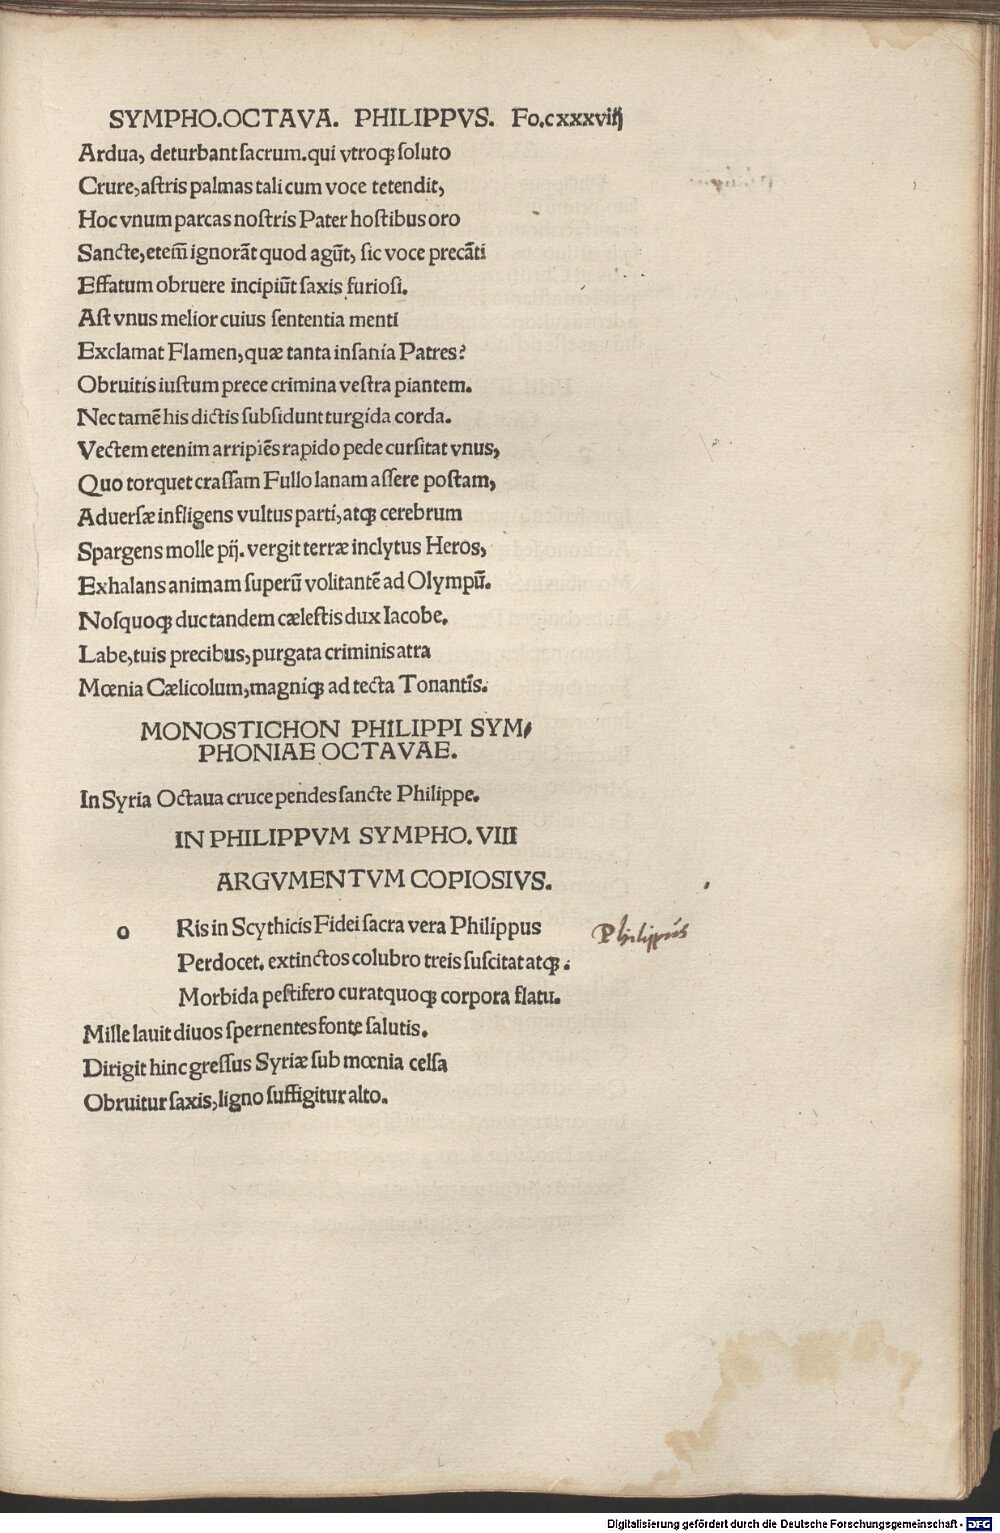 SYMPHO.OCTAVA. PHILIPPVS. Fo.cxxxviij
Ardua, deturbant sacrum.qui vtroqꝫ soluto
Crure, astris palmas tali cum voce tetendit,
Hoc vnum parcas nostris Pater hostibus oro
Sancte, etem̄ ignorãt quod agũt, sic voce precãti
Effatum obruere incipiũt saxis furiosi.
Ast vnus melior cuius sententia menti
Exclamat Flamen, quæ tanta insania Patres?
Obruitis iustum prece crimina vestra piantem.
Nec tamẽ his dictis subsidunt turgida corda.
Vectem etenim arripiẽs rapido pede cursitat vnus,
Quo torquet crassam Fullo lanam assere postam,
Aduersæ infligens vultus parti, atqꝫ cerebrum
Spargens molle pij. vergit terræ inclytus Heros,
Exhalans animam superũ volitantẽ ad Olympũ.
Nosquoqꝫ duc tandem cælestis dux Iacobe.
Labe, tuis precibus, purgata criminis atra
Mœnia Cælicolum, magniqꝫ ad tecta Tonantis.
MONOSTICHON PHILIPPI SYM/
PHONIAE OCTAVAE.
In Syria Octaua cruce pendes sancte Philippe.
IN PHILIPPVM SYMPHO. VIII
ARGVMENTVM COPIOSIVS.
o Ris in Scythicis Fidei sacra vera Philippus
Philippus
Perdocet. extinctos colubro treis suscitat atqꝫ.
Morbida pestifero curatquoqꝫ corpora flatu.
Mille lauit diuos spernentes fonte salutis.
Dirigit hinc gressus Syriæ sub mœnia celsa
Obruitur saxis, ligno suffigitur alto.
Digitalisierung gefördert durch die Deutsche Forschungsgemeinschaft - DFG